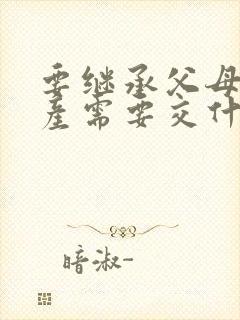 要继承父母
产需要交什
暗淑-